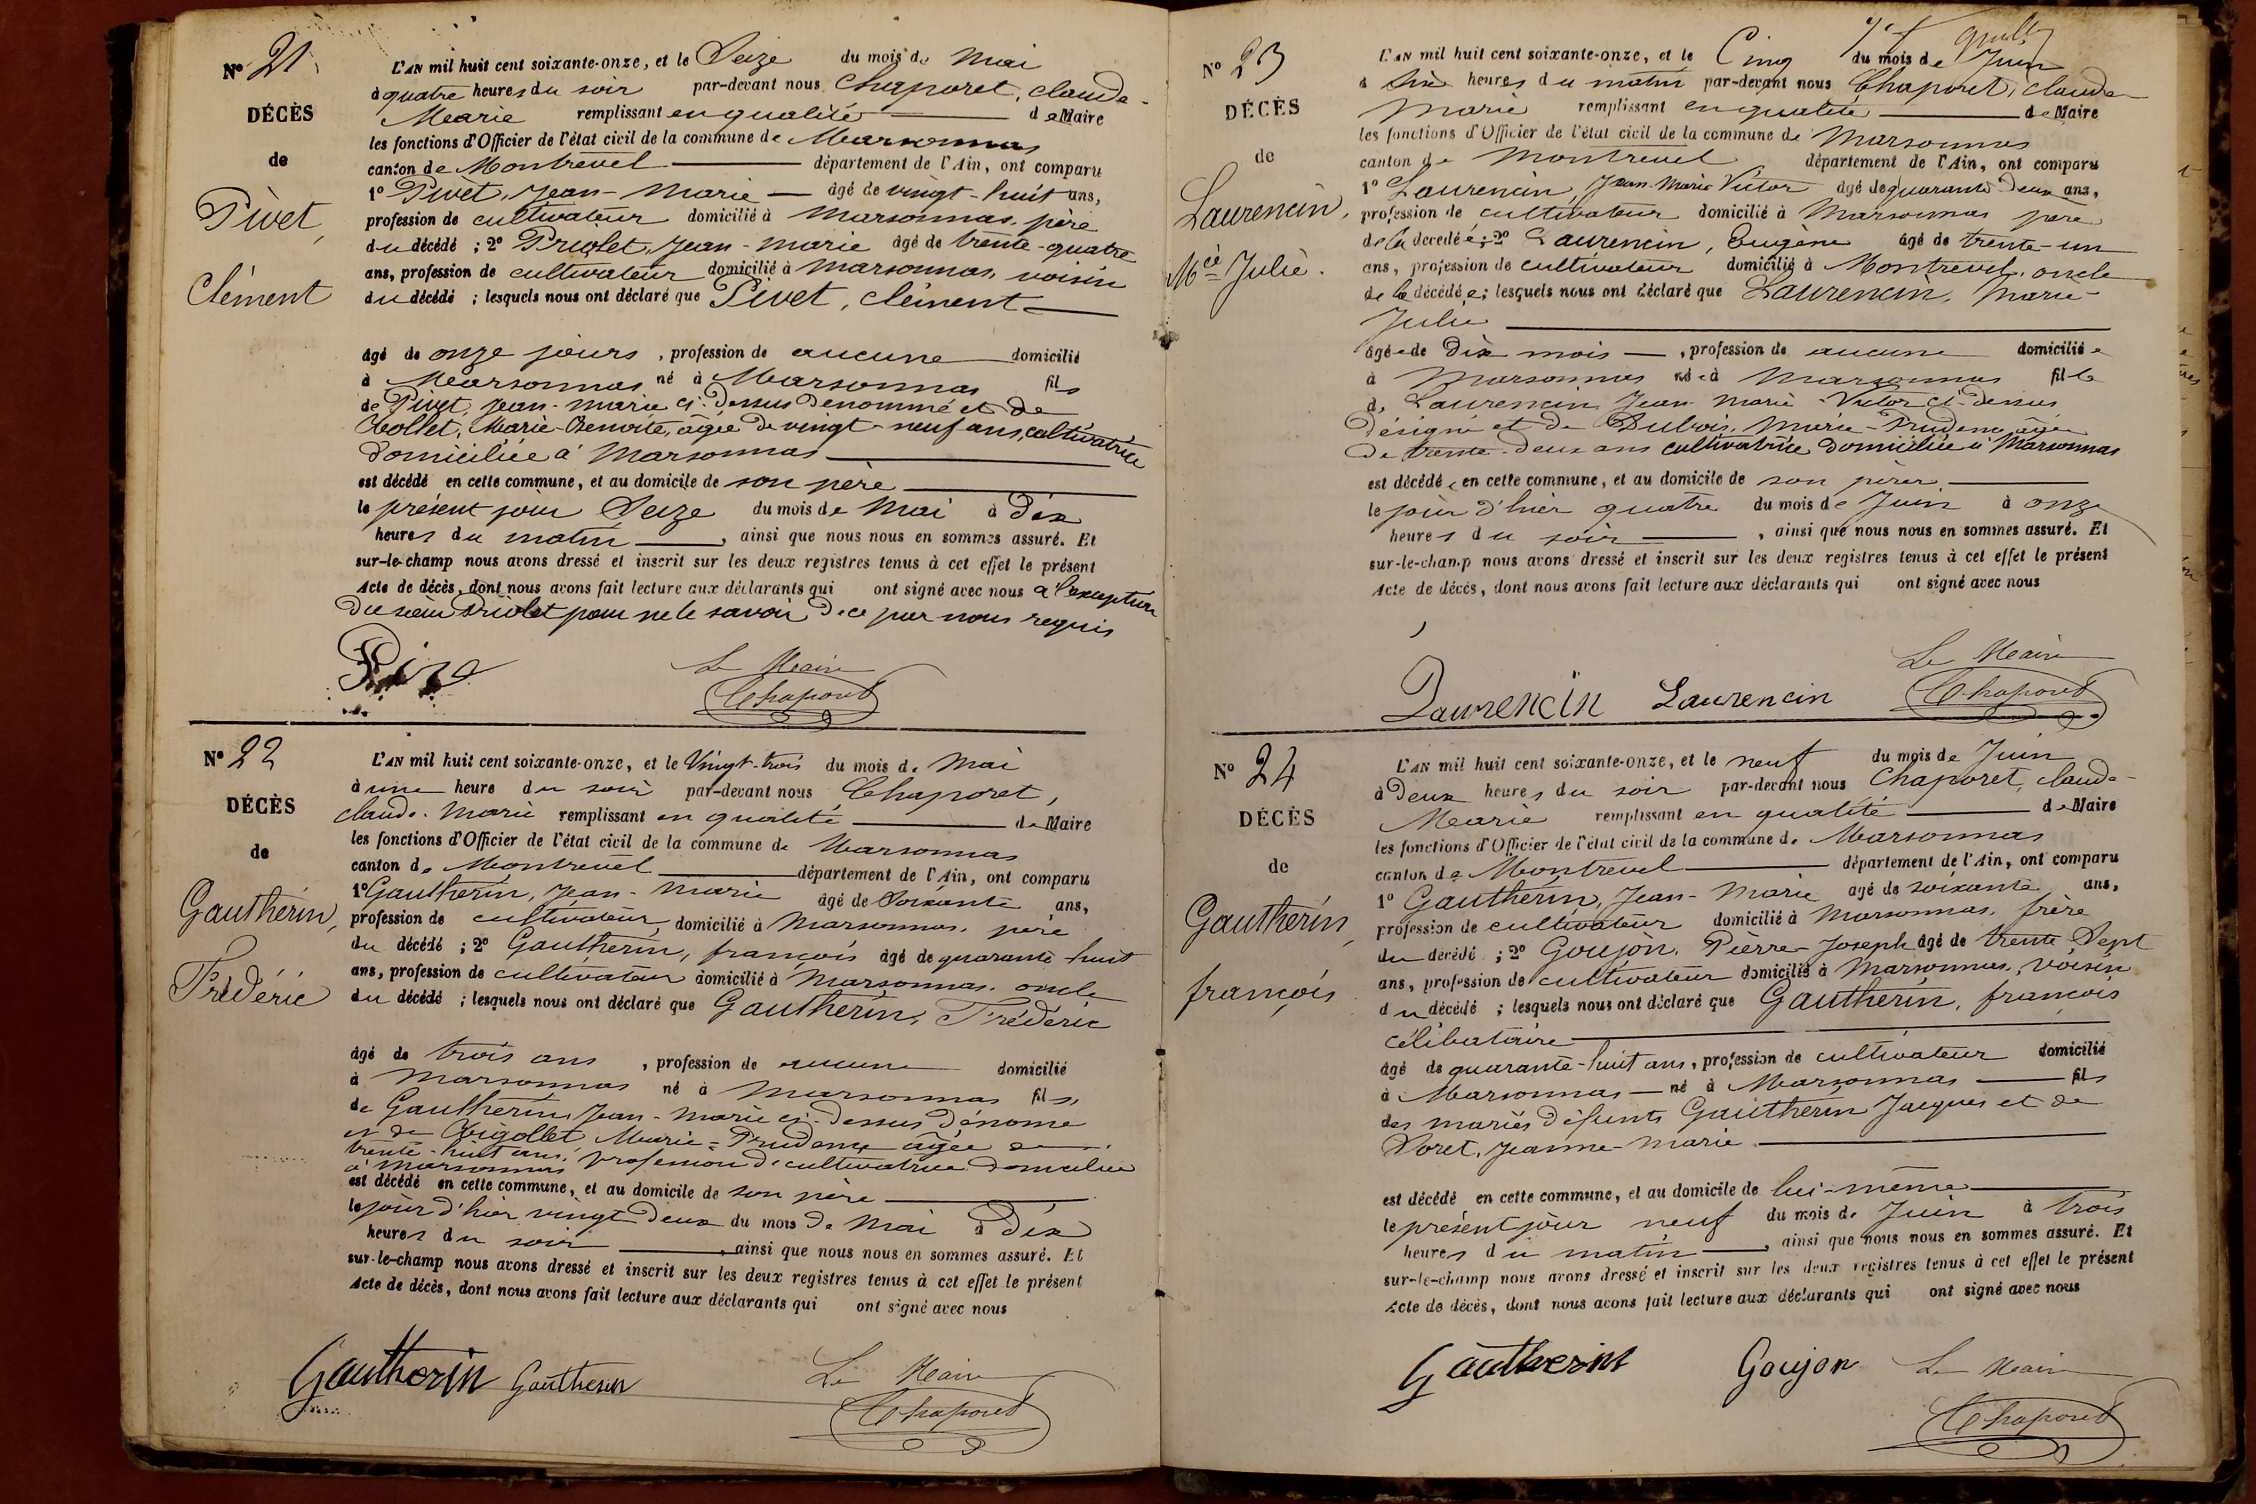 N° 21
DÉCÈS
de
Pivet,
Clément
L'AN mil huit cent soixante-onze, et le Seize du mois de Mai
à quatre heures du soir par-devant nous Chaporet, claude-
Marie remplissant en qualité de Maire
les fonctions d'Officier de l'état civil de la commune de Marsonnas
canton de Montrevel département de l'Ain, ont comparu
1° Pivet, Jean-Marie âgé de vingt-huit ans,
profession de cultivateur domicilié à Marsonnas, père
du décédé ; 2° Priolet, Jean-Marie âgé de trente-quatre
ans, profession de cultivateur domicilié à Marsonnas, voisin
du décédé ; lesquels nous ont déclaré que Pivet, clément
âgé de onze jours, profession de aucune domicilié
à Marsonnas né à Marsonnas fils
de Pivet, Jean-Marie ci-dessus dénommé et de
Marie-Benoite, âgée de vingt-neuf ans, cultivatrice
domiciliée à Marsonnas
est décédé en cette commune, et au domicile de son père
le présent jour Seize du mois de Mai à dix
heures du matin, ainsi que nous nous en sommes assuré. Et
sur-le-champ nous avons dressé et inscrit sur les deux registres tenus à cet effet le présent
Acte de décès, dont nous avons fait lecture aux déclarants qui ont signé avec nous à l'exception
du sieur Priolet pour ne le savoir de ce par nous requis
Le Maire
Chaporet
N° 22
DÉCÈS
de
Gautherin,
Frédéric
L'AN mil huit cent soixante-onze, et le Vingt-trois du mois de Mai
à une heure du soir par-devant nous Chaporet,
claude-Marie remplissant en qualité de Maire
les fonctions d'Officier de l'état civil de la commune de Marsonnas
canton de Montrevel département de l'Ain, ont comparu
1° Gautherin, Jean-Marie âgé de Soixante ans,
profession de cultivateur domicilié à Marsonnas, père
du décédé ; 2° Gautherin, françois âgé de quarante huit
ans, profession de cultivateur domicilié à Marsonnas, oncle
du décédé ; lesquels nous ont déclaré que Gautherin, Frédéric
âgé de trois ans, profession de aucune domicilié
à Marsonnas né à Marsonnas fils
de Gautherin, Jean-Marie ci-dessus dénomé
et de Marie-Prudence âgée de
trente-huit ans, profession de cultivatrice domiciliée
à Marsonnas
est décédé en cette commune, et au domicile de son père
le jour d'hier vingt deux du mois de Mai à dix
heures du soir, ainsi que nous nous en sommes assuré. Et
sur-le-champ nous avons dressé et inscrit sur les deux registres tenus à cet effet le présent
Acte de décès, dont nous avons fait lecture aux déclarants qui ont signé avec nous
Gautherin Gautherin Le Maire
Chaporet
N° 23
DÉCÈS
de
Laurencin,
Mie Julie.
L'AN mil huit cent soixante-onze, et le Cinq du mois de Juin
à Six heures du matin par-devant nous Chaporet, claude
Marie remplissant en qualité de Maire
les fonctions d'Officier de l'état civil de la commune de Marsonnas
canton de Montrevel département de l'Ain, ont comparu
1° Laurencin, Jean-Marie Victor âgé de quarante Deux ans,
profession de cultivateur domicilié à Marsonnas père
de la décédée ; 2° Laurencin, Eugène âgé de trente-un
ans, profession de cultivateur domicilié à Montrevel, oncle
de la décédée ; lesquels nous ont déclaré que Laurencin, Marie-
Julie
âgée de Dix mois, profession de aucune domiciliée
à Marsonnas née à Marsonnas fille
de Laurencin Jean Marie Victor ci-dessus
désigné et de Dubois, Marie-Prudence âgée
de trente-deux ans cultivatrice domiciliée à Marsonnas
est décédée en cette commune, et au domicile de son père
le jour d'hier quatre du mois de Juin à onze
heures du soir, ainsi que nous nous en sommes assuré. Et
sur-le-champ nous avons dressé et inscrit sur les deux registres tenus à cet effet le présent
Acte de décès, dont nous avons fait lecture aux déclarants qui ont signé avec nous
Le Maire
Laurencin Laurencin Chaporet
N° 24
DÉCÈS
de
Gautherin,
françois
L'AN mil huit cent soixante-onze, et le neuf du mois de Juin
à Deux heures du soir par-devant nous Chaporet, claude-
Marie remplissant en qualité de Maire
les fonctions d'Officier de l'état civil de la commune de Marsonnas
canton de Montrevel département de l'Ain, ont comparu
1° Gautherin, Jean-Marie âgé de soixante ans,
profession de cultivateur domicilié à Marsonnas, frère
du décédé ; 2° Goujon, Pierre-Joseph âgé de trente Sept
ans, profession de cultivateur domicilié à Marsonnas, voisin
du décédé ; lesquels nous ont déclaré que Gautherin, françois
célibataire
âgé de quarante-huit ans, profession de cultivateur domicilié
à Marsonnas né à Marsonnas fils
des mariés défunts Gautherin Jacques et de
Jeanne-Marie
est décédé en cette commune, et au domicile de lui-même
le présent jour neuf du mois de Juin à trois
heures du matin, ainsi que nous nous en sommes assuré. Et
sur-le-champ nous avons dressé et inscrit sur les deux registres tenus à cet effet le présent
Acte de décès, dont nous avons fait lecture aux déclarants qui ont signé avec nous
Gautherin Goujon Le Maire
Chaporet